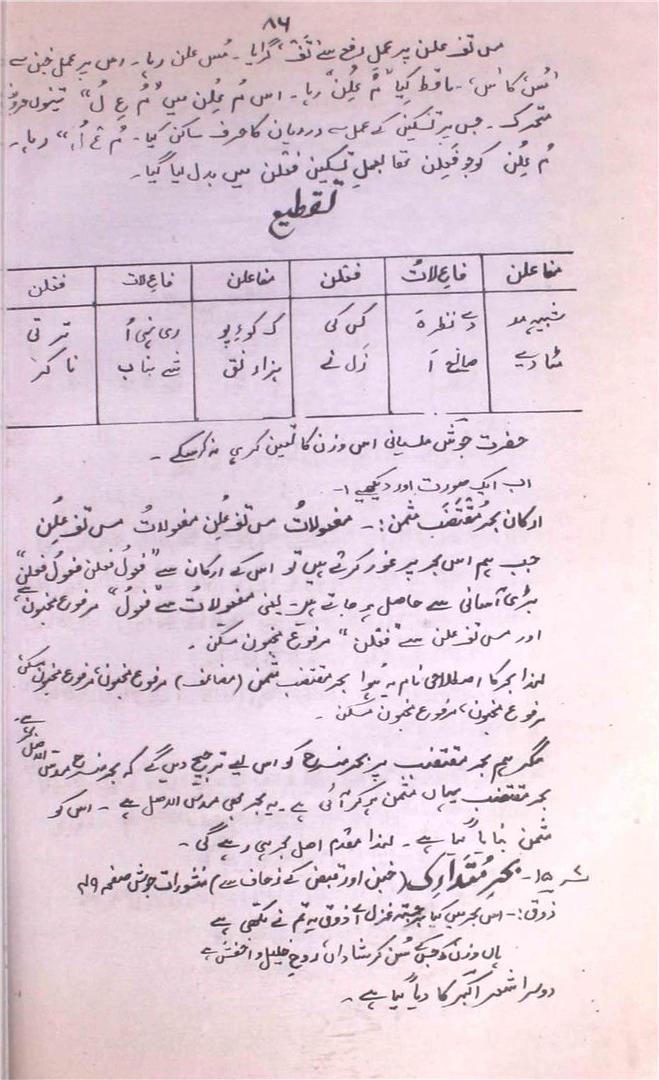 ۸۶
مس تف علن پر عمل رفع سے "تَف" گرایا۔ مُس علن رہا۔ اس پر عمل خبن سے
"مُس" کا "س" ساقط کیا "مُ عِلُن" رہا۔ اس مُ عِلُن میں "مُ عِ لُ" تینوں حروف
متحرک۔ جس پر تسکین کے عمل سے درمیان کا حرف ساکن کیا۔ رہا۔
مُ عِلُن کو جو فَعِلن تھا بعملِ تسکین فعْلن میں بدل لیا گیا۔
تقطیع
مفاعلن فاعِ لاتُ فعْلن مفاعلن فاعِ لاتُ فعْلن
شبیہ مو دے نظر کس کی کہ کوئ پو ری نہی اُ تر تی
مٹا دیے صانع اَ زل نے ہزار نق شے بناب نا کر
حضرت جوشؔ ملسیانی اس وزن کا تعین کر ہی نہ سکے۔
اب ایک صورت اور دیکھیے :۔
ارکان بحر مُقتَضَب مثمن :۔ مفعولاتُ مس تف عِلُن مفعولاتُ مس تف عِلُن
جب ہم اس بحر پر غور کرتے ہیں تو اس کے ارکان سے "فعولُ فعْلن فعولُ فعْلن"
بڑی آسانی سے حاصل ہو جاتے ہیں۔ یعنی مفعولاتُ سے "فعولُ" مرفوع مخبون ہے
اور مس تف علن سے "فعْلن" مرفوع مخبون مسکن۔
لہٰذا بحر کا اصطلاحی نام یہ ہُوا بحر مقتضب مثمن (مضاعف) مرفوع مخبون، مرفوع مخبون مسکن
مرفوع مخبون، مرفوع مخبون مسکن۔
مگر ہم بحر مقتضب پر بحر منسرح کو اس لیے ترجیح دیں گے کہ بحر منسرح مسدس الاصل بحر ہے۔
بحر مقتضب یہاں مثمن ہو کر آئی ہے۔ یہ بحر بھی مسدس الاصل ہے۔ اس کو
مثمن بنایا گیا ہے۔ لہٰذا مقدم اصل بحر ہی رہے گی۔
۱۵۔ بحرِ مُتَدَارِک (خبن اور قبض کے زحاف سے) منشوراتِ جوشؔ صفحہ
ذوق :۔ اس بحر میں کیا برجستہ غزل اے ذوق یہ تم نے لکھی ہے
ہاں وزن کو جس کے سُن کر شاداں، روحِ خلیل و اخفش ہے
دوسرا شعر اکبر کا دیا گیا ہے۔